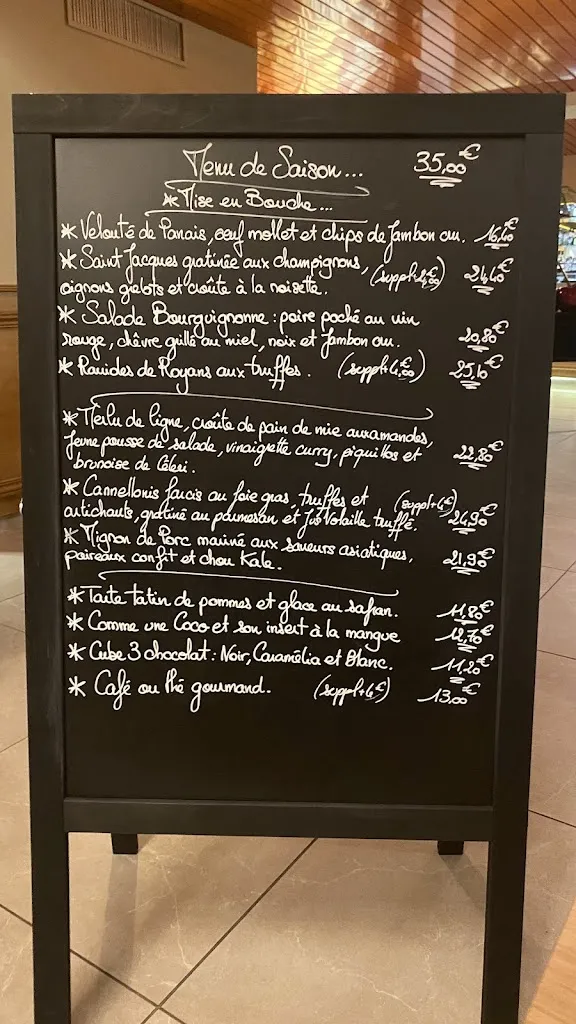 Menu de Saison... 35,00€
* Mise en Bouche...
* Velouté de Panais, oeuf mollet et chips de Jambon cru. 16,40€
* Saint Jacques gratinée aux champignons, (suppl+2,00€) 24,40€
oignons grelots et croûte à la noisette.
* Salade Bourguignonne : poire poché au vin
rouge, chèvre grillé au miel, noix et Jambon cru. 20,80€
* Ravioles de Royans aux truffes. (suppl+4,00€) 25,10€
* Merlu de ligne, croûte de pain de mie aux amandes,
Jeune pousse de salade, vinaigrette curry, piquillos et 22,80€
brunoise de Céleri.
* Cannellonis farcis au foie gras, truffes et (suppl+4€)
artichauts, gratiné au parmesan et Jus Volaille truffé. 24,90€
* Mignon de Porc mariné aux saveurs asiatiques, 21,90€
poireaux confit et chou Kale.
* Tarte tatin de pommes et glace au safran. 11,80€
* Comme une Coco et son insert à la mangue 12,70€
* Cube 3 chocolat : Noir, Caramélia et Blanc. 11,20€
* Café ou thé gourmand. (suppl+4€) 13,00€